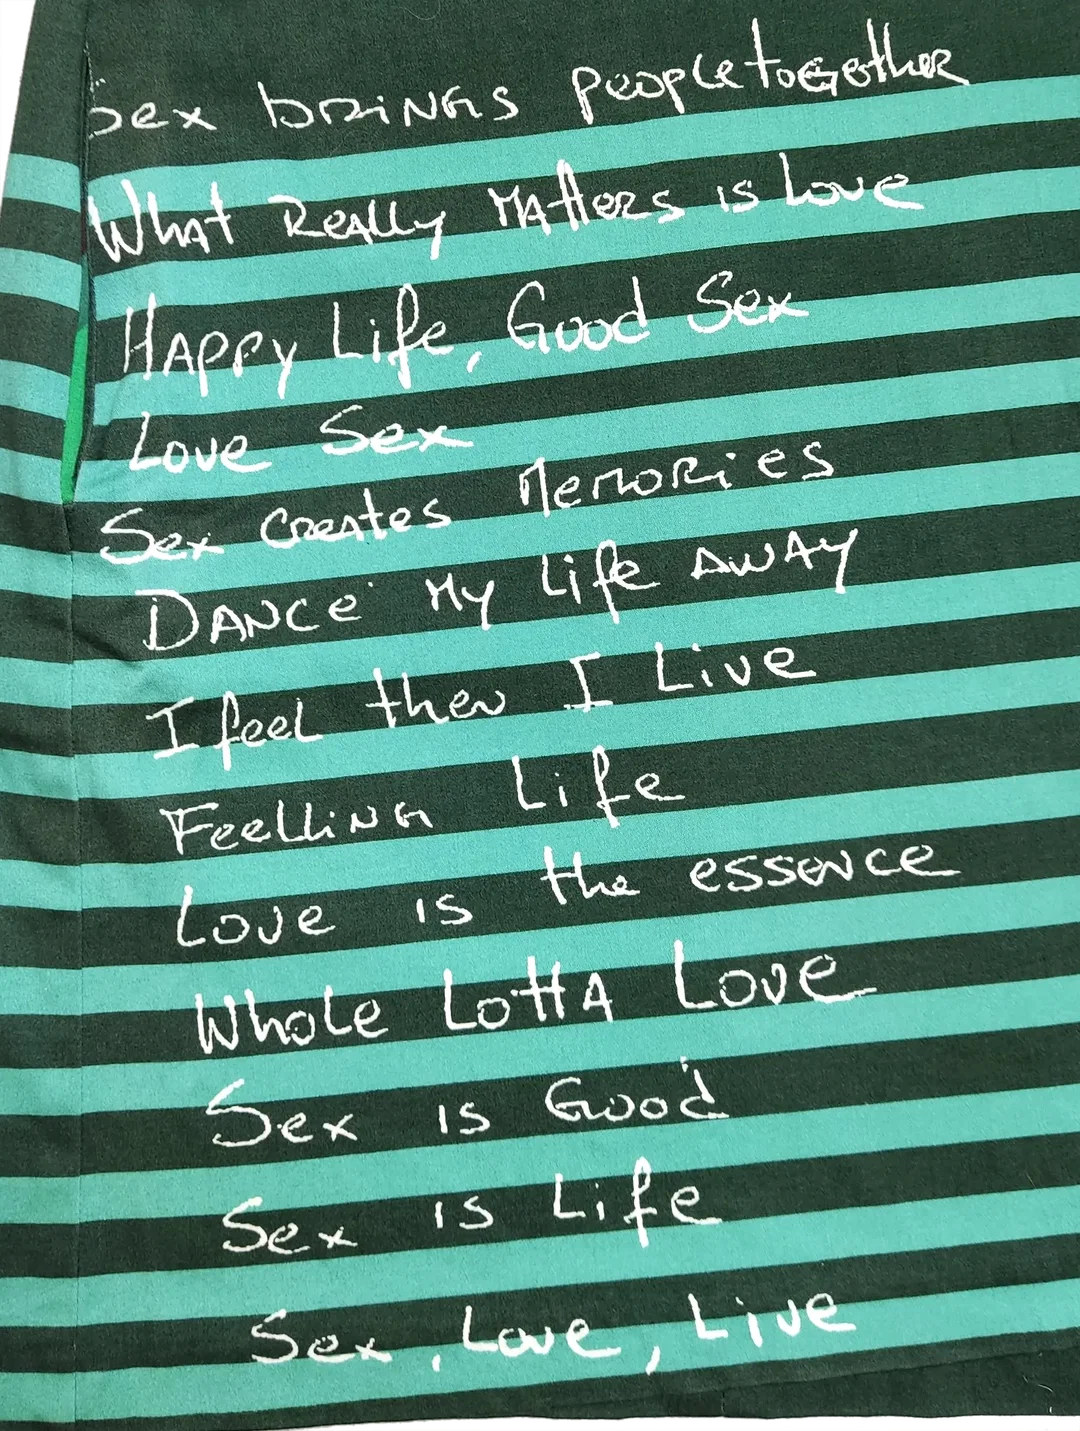 Sex bRiNGs peopletoGether
WhAt ReAlly MAtteRs is Love
HAppy Life, Good Sex
Love Sex
Sex CReAtes MeMoRies
DANCe My Life AWAy
I feel then I Live
FeelliNG Life
Love is the esseNce
Whole LottA Love
Sex is Good
Sex is Life
Sex, Love, Live